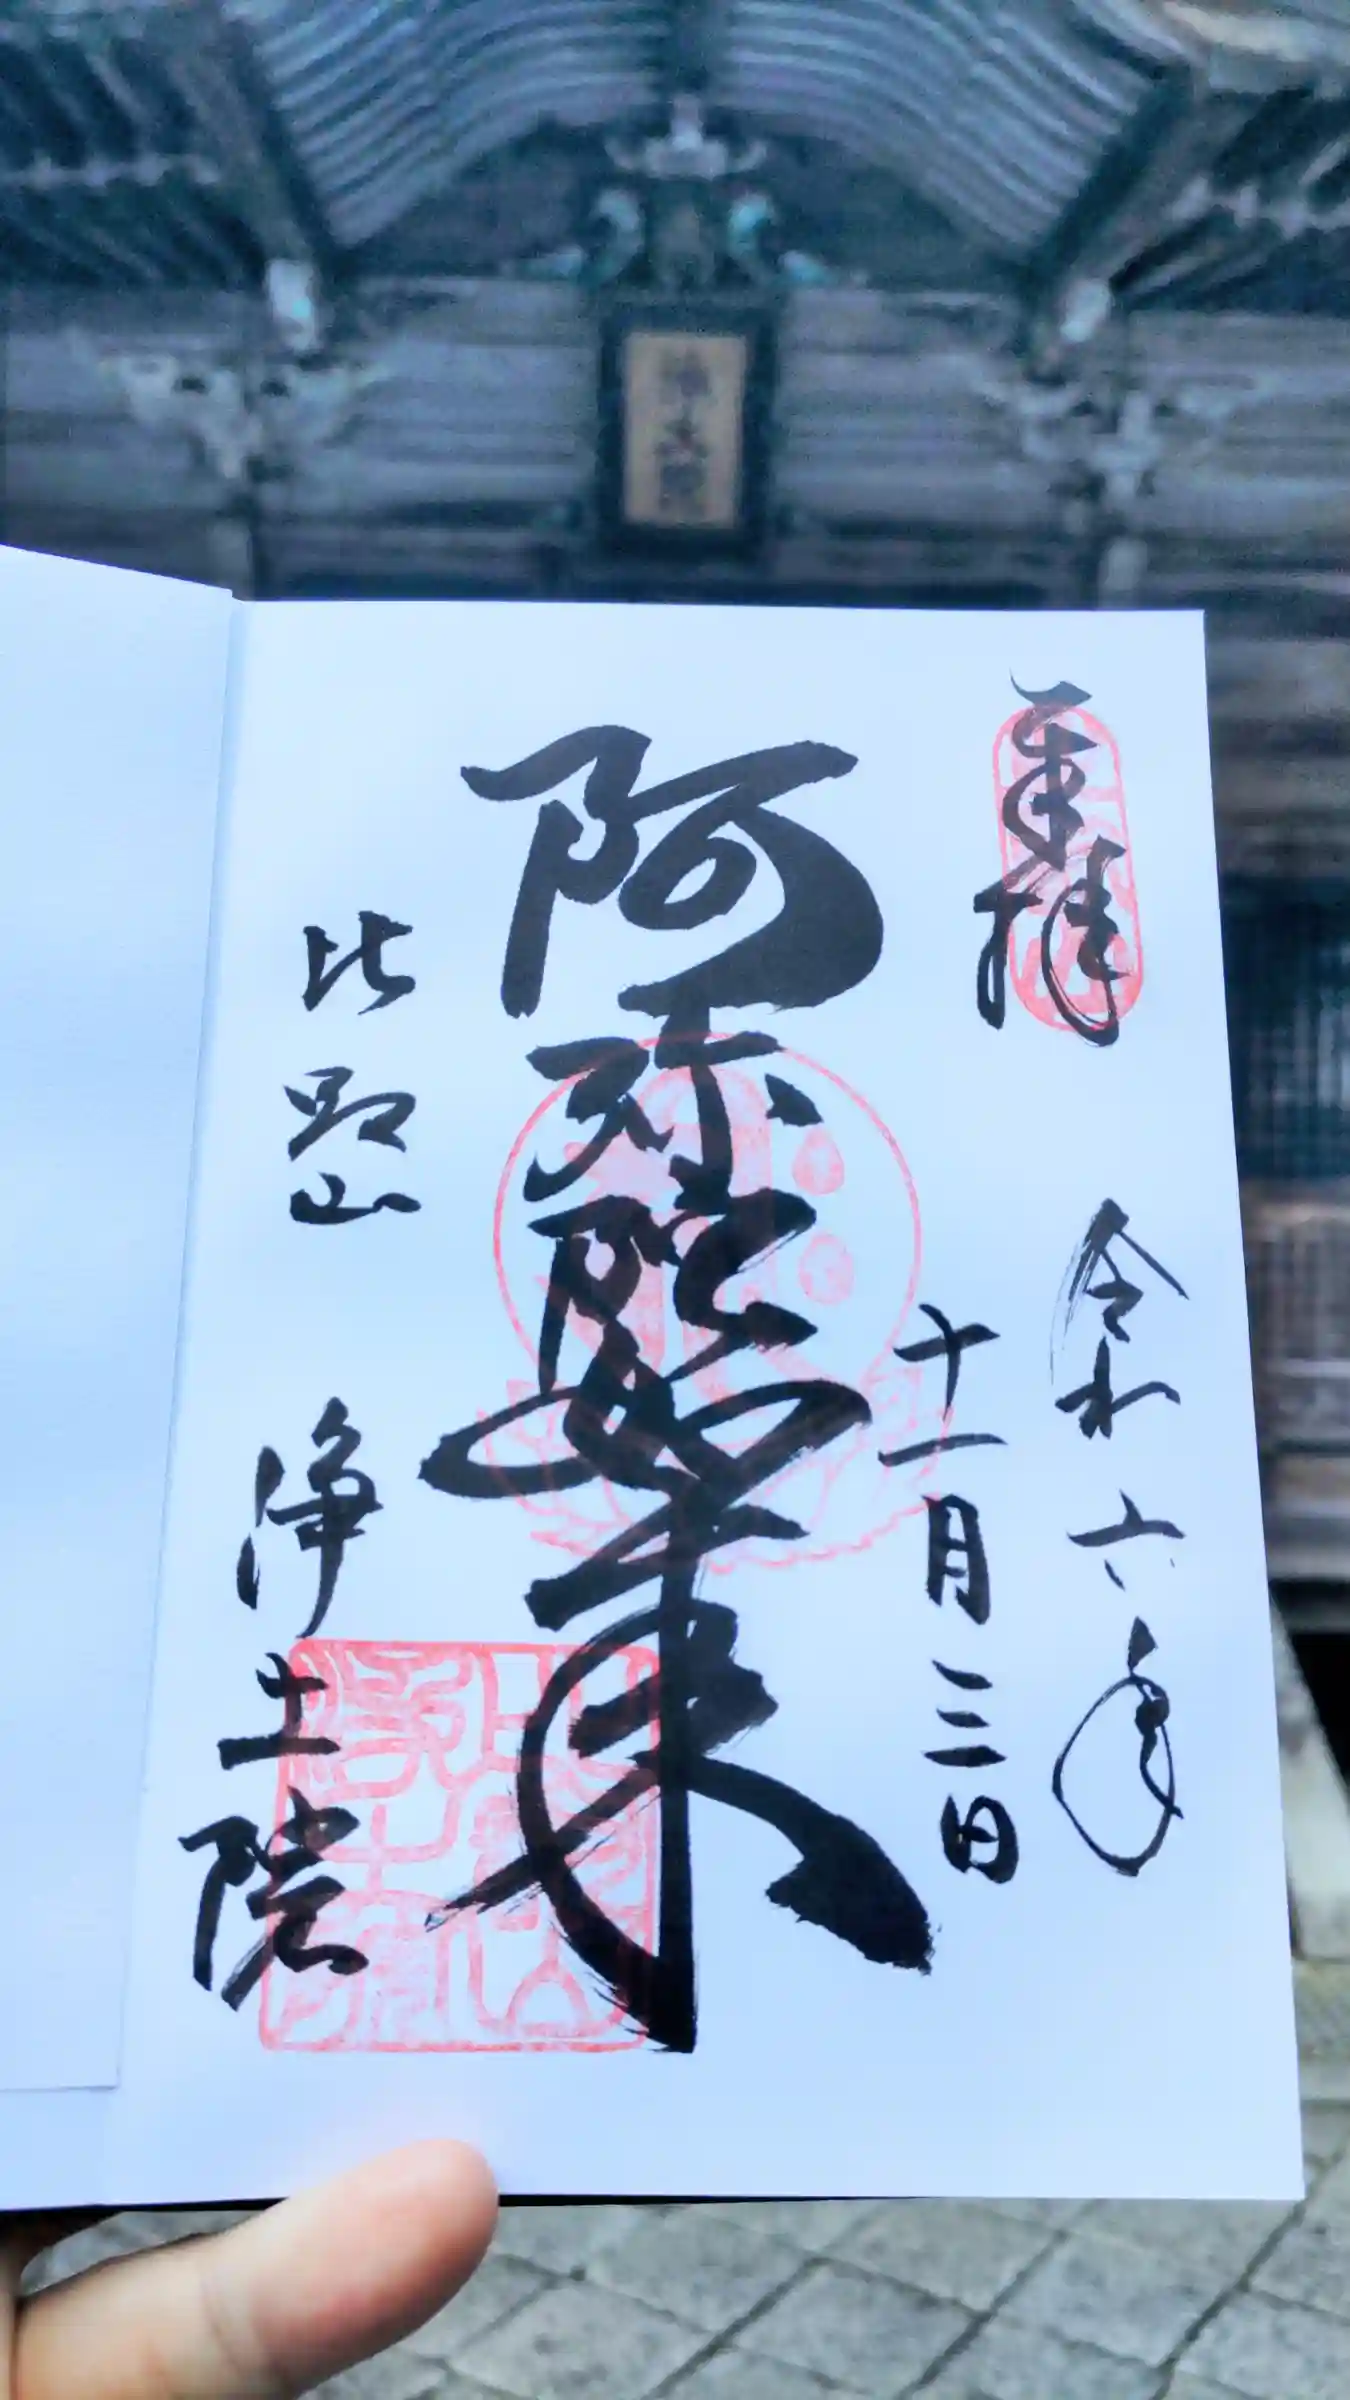 奉拝
令和六年
十一月三日
阿弥陀如来
比叡山
浄土院
浄土院